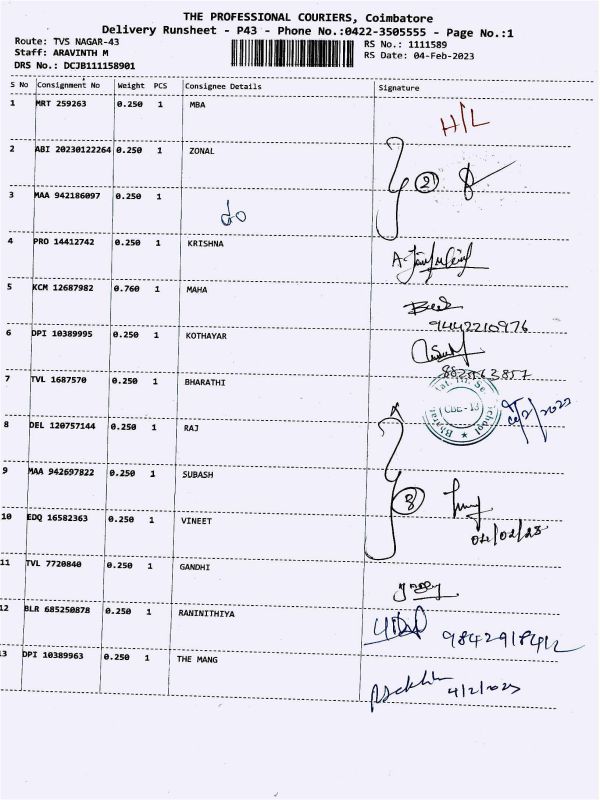 THE PROFESSIONAL COURIERS, Coimbatore
Delivery Runsheet - P43 - Phone No.:0422-3505555 - Page No.:1
Route: TVS NAGAR-43
RS No.: 1111589
Staff: ARAVINTH M
RS Date: 04-Feb-2023
DRS No.: DCJB111158901
S No Consignment No Weight PCS Consignee Details Signature
1 MRT 259263 0.250 1 MBA H/L
2 ABI 20230122264 0.250 1 ZONAL 2
3 MAA 942186097 0.250 1
4 PRO 14412742 0.250 1 KRISHNA
5 KCM 12687982 0.760 1 MAHA
9442210976
6 DPI 10389995 0.250 1 KOTHAYAR
7 TVL 1687570 0.250 1 BHARATHI
CBE - 13
8 DEL 120757144 0.250 1 RAJ
9 MAA 942697822 0.250 1 SUBASH
10 EDQ 16582363 0.250 1 VINEET
04/02/23
11 TVL 7720840 0.250 1 GANDHI
12 BLR 685250878 0.250 1 RANINITHIYA
9842918412
13 DPI 10389963 0.250 1 THE MANG
4/2/2023